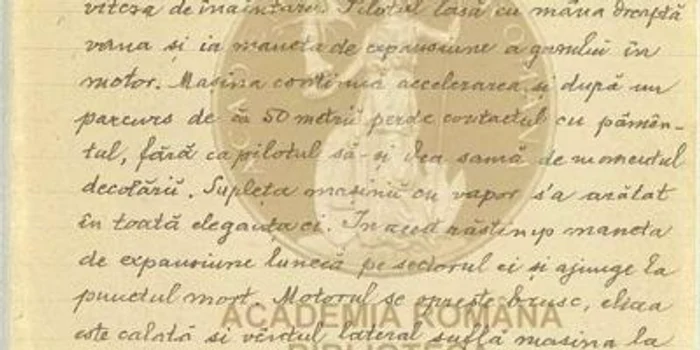 viteza de înaintare. Pilotul lasă cu mâna dreaptă
vana și ia maneta de expansiune a gazului în
motor. Mașina continuă accelerarea și după un
parcurs de ca 50 metrii perde contactul cu pămên-
tul, fără ca pilotul să-și dea samă de momentul
decolării. Supleța mașinii cu vapor s'a arătat
în toată eleganța ei. In acest răstimp maneta
de expansiune lunecă pe sectorul ei și ajunge la
punctul mort. Motorul se oprește brusc, elicea
este calată si vêntul lateral suflă mașina la
ACADEMIA ROMÂNĂ
BIBLIOTECA